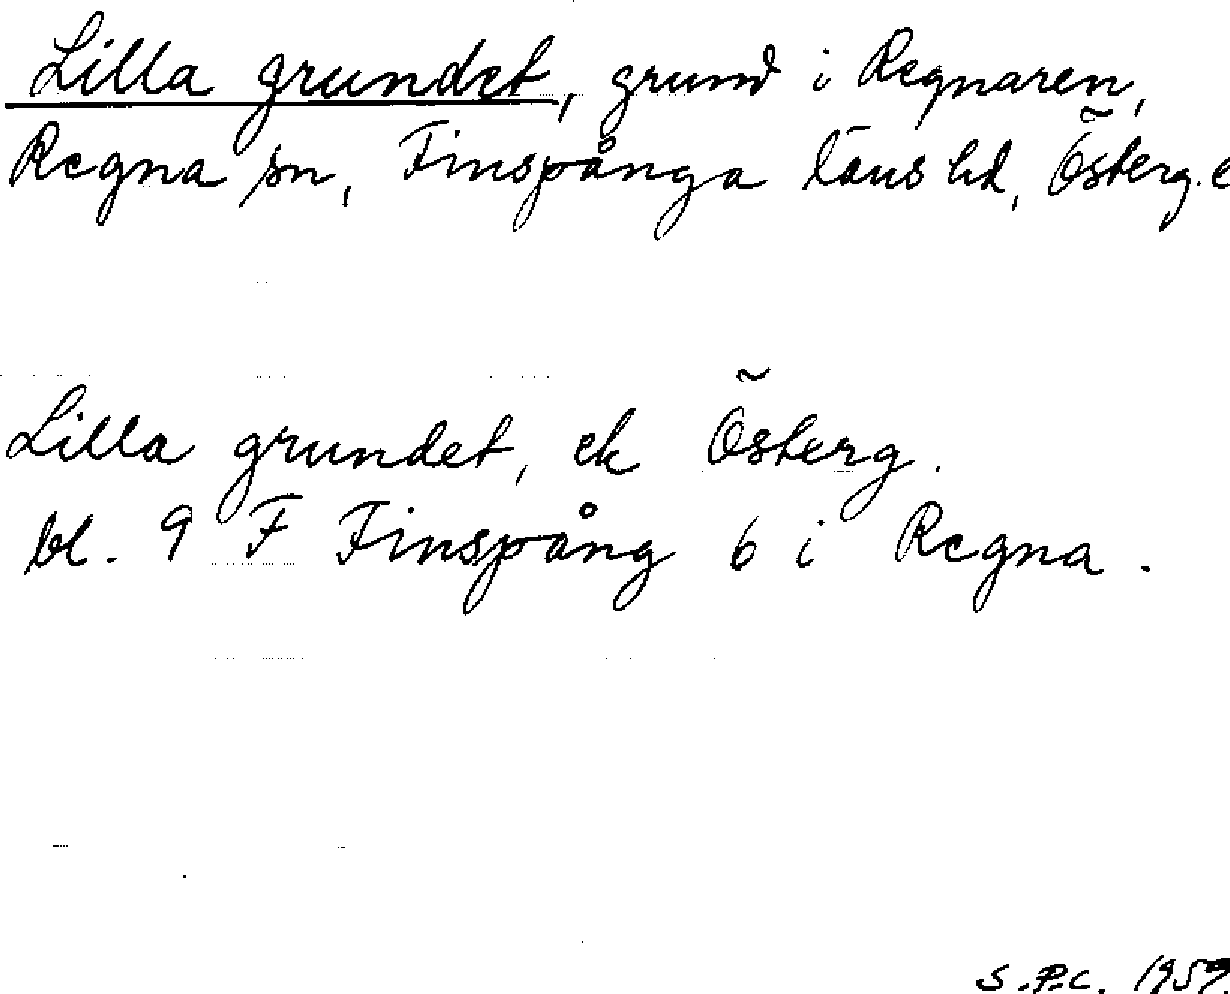 Lilla grundet, grund i Regnaren,
Regna sn, Finspånga läns hd, Österg.
Lilla grundet, ek Österg.
bl. 9 F Finspång 6 i Regna.
S.P.C. 1959.